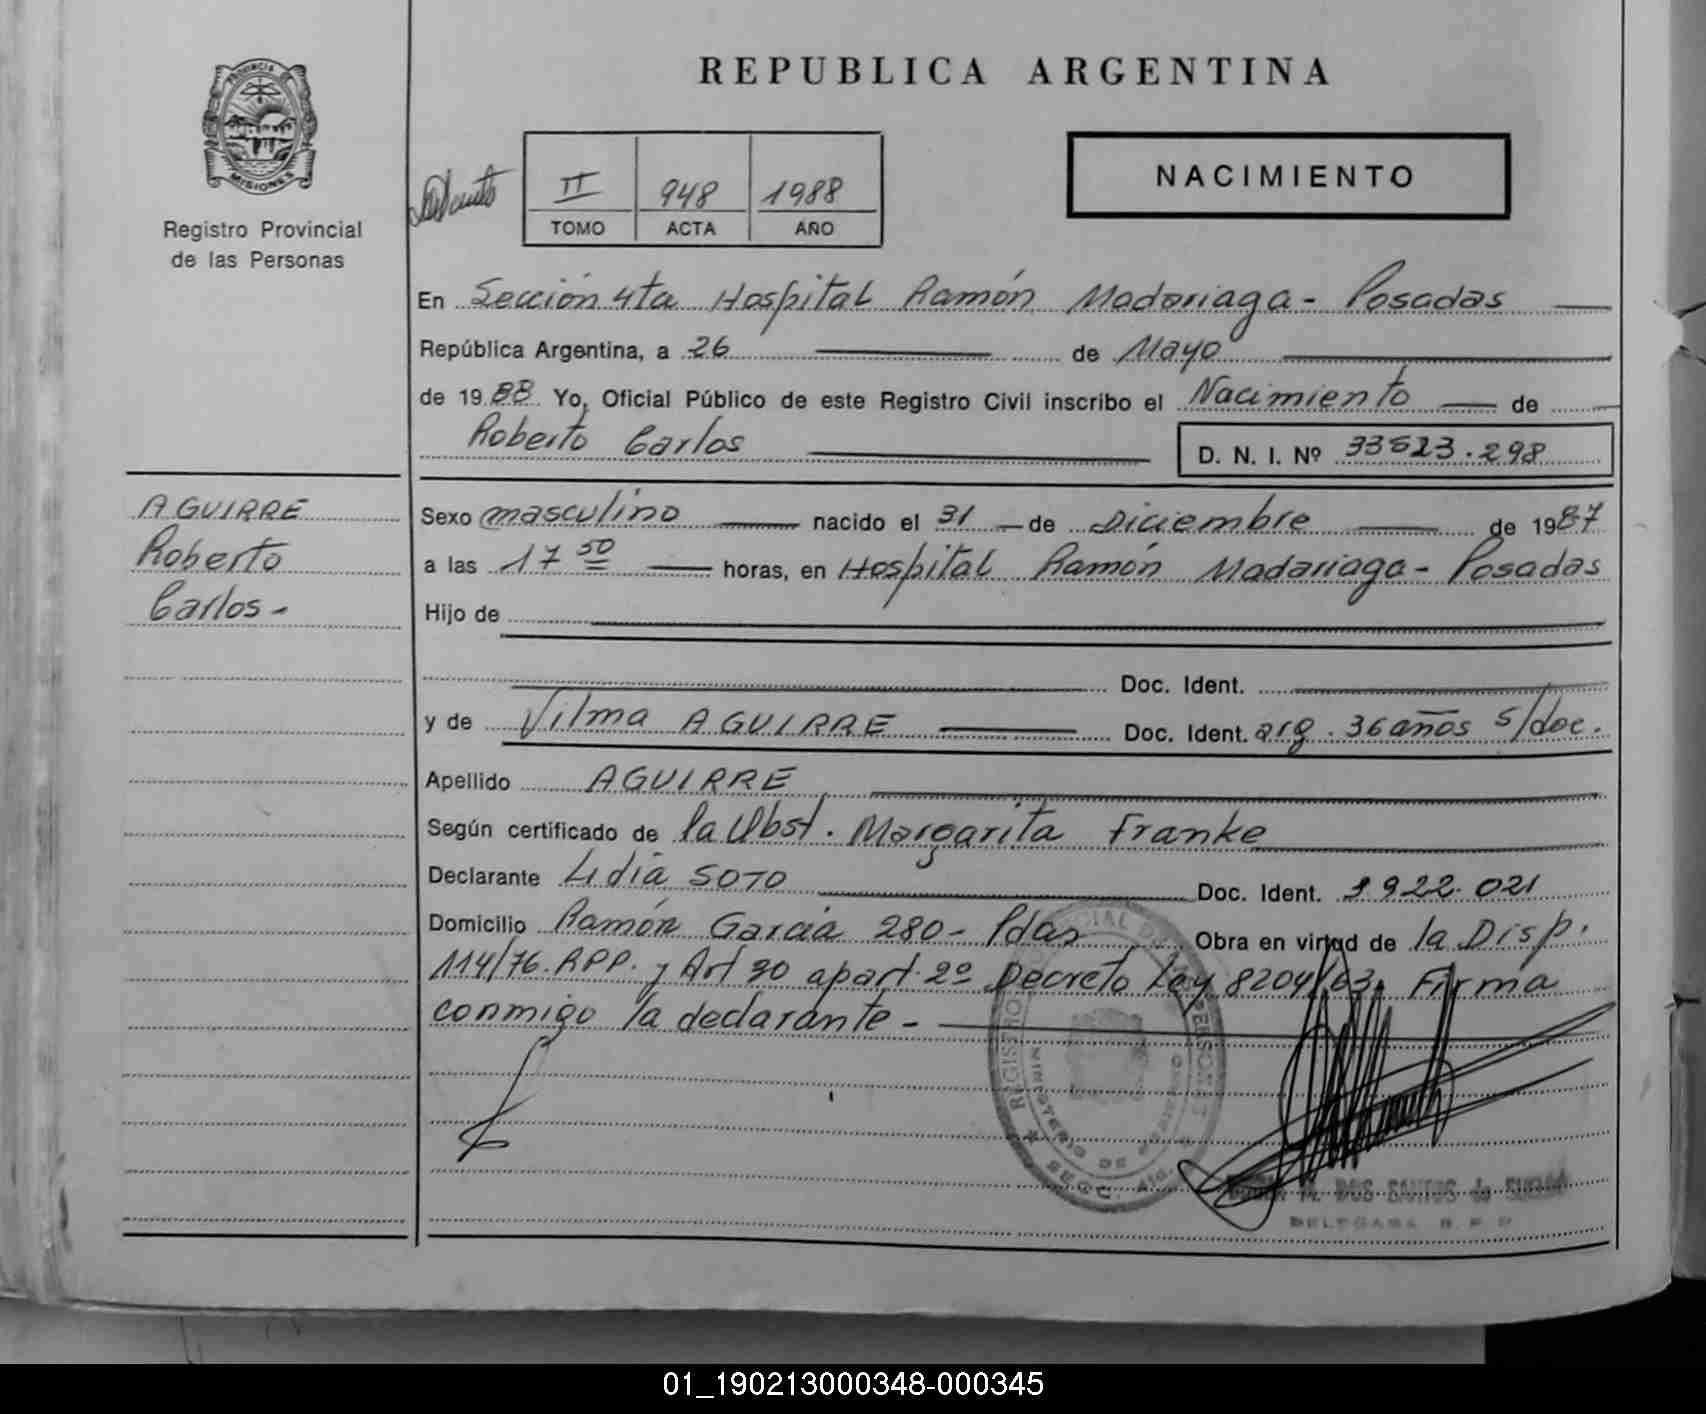 REPUBLICA ARGENTINA
PROVINCIA DE
MISIONES
Registro Provincial
de las Personas
II 948 1988
TOMO ACTA AÑO
NACIMIENTO
En Sección 4ta Hospital Ramón Madariaga - Posadas
República Argentina, a 26 de Mayo
de 1988 Yo, Oficial Público de este Registro Civil inscribo el Nacimiento de
Roberto Carlos
D. N. I. Nº 33523.298
AGUIRRE
Roberto
Carlos -
Sexo masculino nacido el 31 de Diciembre de 1987
a las 17 50 horas, en Hospital Ramón Madariaga - Posadas
Hijo de
Doc. Ident.
y de Vilma AGUIRRE Doc. Ident. arg. 36 años s/doc.
Apellido AGUIRRE
Según certificado de la Obst. Margarita Franke
Declarante Lidia SOTO Doc. Ident. 3922.021
Domicilio Ramón García 280 - Pdas Obra en virtud de la Disp.
114/76. RPP. y Art 30 apart. 2º Decreto Ley 8204/63. Firma
conmigo la declarante -
M. DOS SANTOS de
DELEGADA R. P. P.
01_190213000348-000345